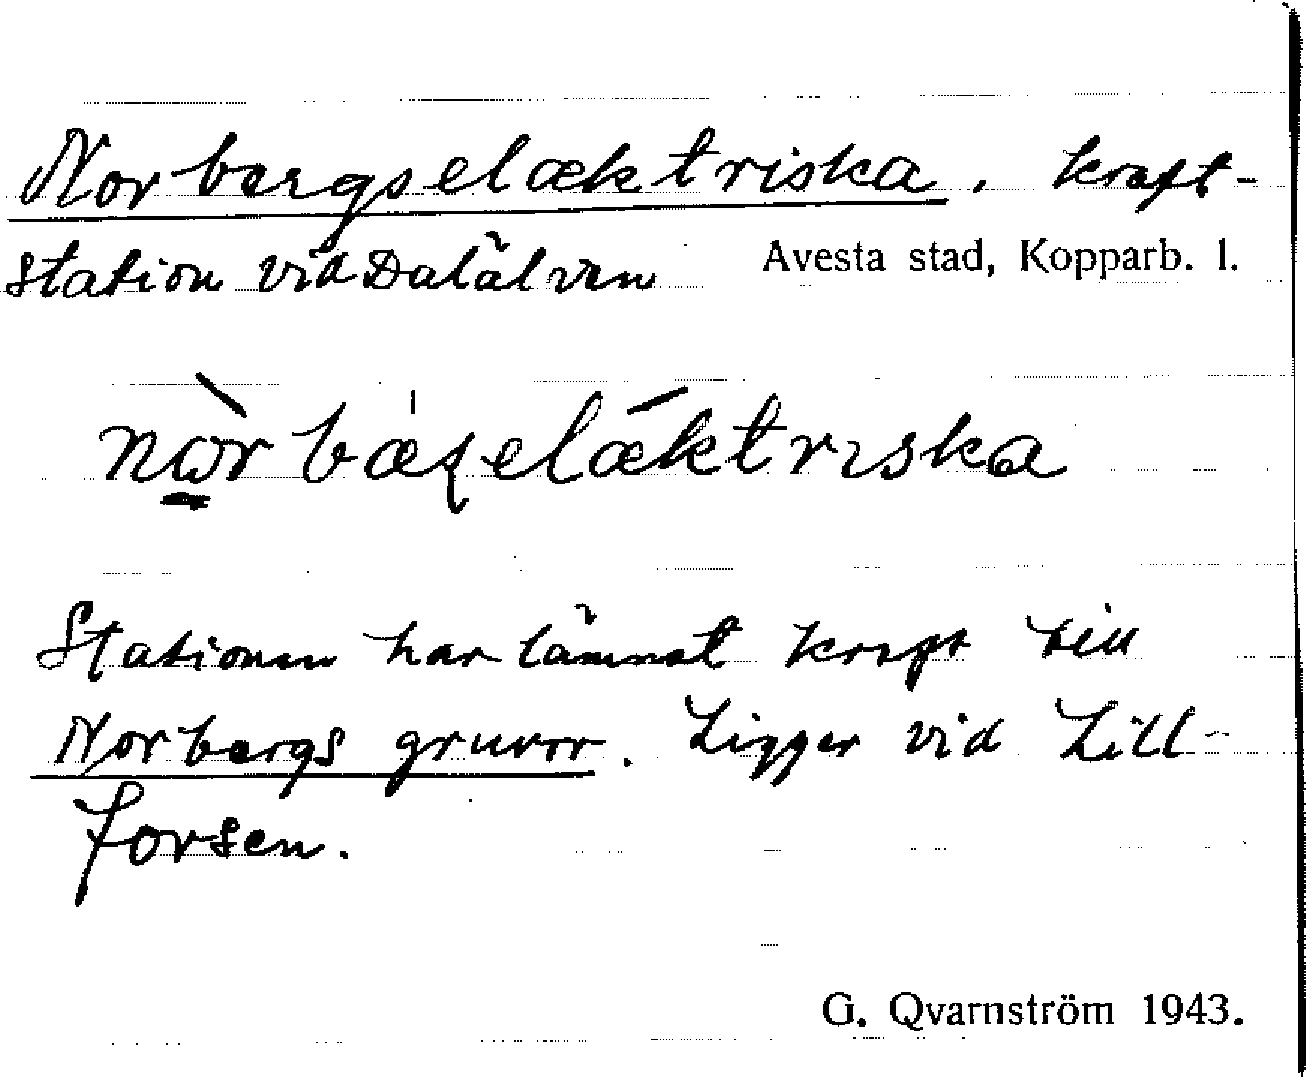 Norbergselæktriska, kraft-
station vid Dalälven Avesta stad, Kopparb. l.
nòrbæʂelǽktrɩska
Stationen har lämnat kraft till
Norbergs gruvor. Ligger vid Lill-
forsen.
G. Qvarnström 1943.